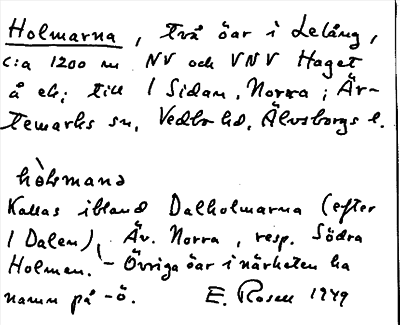 Holmarna, två öar i Lelång,
c:a 1200 m NV och VNV Haget
å ek; till 1 Sidan, Norra; Är-
temarks sn, Vedbo hd, Älvsborgs l.
hòlmanə
Kallas ibland Dalholmarna (efter
1 Dalen), Äv. Norra, resp. Södra
Holmen. – Övriga öar i närheten ha
namn på -ö. E. Rosell 1949